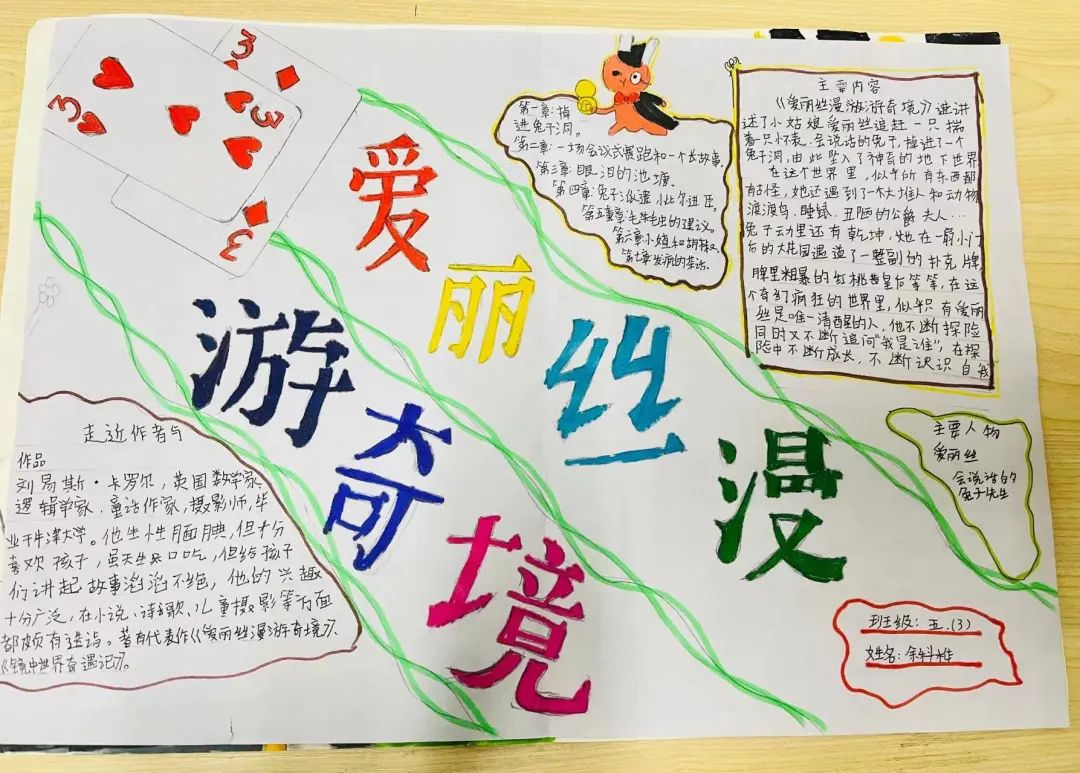 3
3
3
3
爱丽丝漫
游奇境
第一章:掉
进兔子洞。
第二章:一场会议式赛跑和一个长故事,
第三章:眼泪的池塘。
第四章:兔子派遣小比尔进正。
第五章章毛毛虫的建议。
第六章小姐和胡椒
第七章发疯的茶话。
主要内容
《爱丽丝漫游游奇境》进讲
述了小姑娘爱丽丝追赶一只揣
着一只怀表、会说话的兔子,掉进了一个
兔子洞,由此坠入了神奇的地下世界
在这个世界里,似乎所有东西都
有古怪,她还遇到了一个大堆人和动物
渡渡鸟、睡鼠、丑陋的公爵夫人...
兔子云动里还有乾坤,她在一扇小门
后的大花园遇造了一整副的扑克牌
牌里粗暴的红桃皇后等等,在这
个奇幻疯狂的世界里,似乎只有爱丽
丝是唯一清醒的人,他不断探险
同时又不断追问“我是谁”,在探
险中不断成长,不断认识自我
主要人物
爱丽丝
会说话的
兔子先生
走近作者与
作品
刘易斯·卡罗尔,英国数学家
逻辑学家、童话作家、摄影师,毕
业于牛津大学。他生性腼腆,但十分
喜欢孩子,虽天生口吃,但给孩子
们讲起故事滔滔不绝,他的兴趣
十分广泛,在小说、诗歌、儿童摄影等方面
都颇有造诣。著有代表作《爱丽丝漫游奇境》、
《镜中世界奇遇记》。
班级:五.(3)
姓名:余科桦